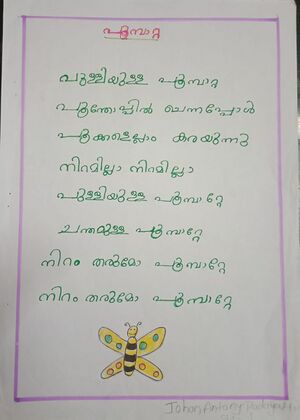 പൂമ്പാറ്റ
പുള്ളിയുള്ള പൂമ്പാറ്റ
പൂന്തോപ്പിൽ ചെന്നപ്പോൾ
പൂക്കളെല്ലാം കരയുന്നു
നിറമില്ലാ നിറമില്ലാ
പുള്ളിയുള്ള പൂമ്പാറ്റേ
ചന്തമുള്ള പൂമ്പാറ്റേ
നിറം തരുമോ പൂമ്പാറ്റേ
നിറം തരുമോ പൂമ്പാറ്റേ
Johan Antony